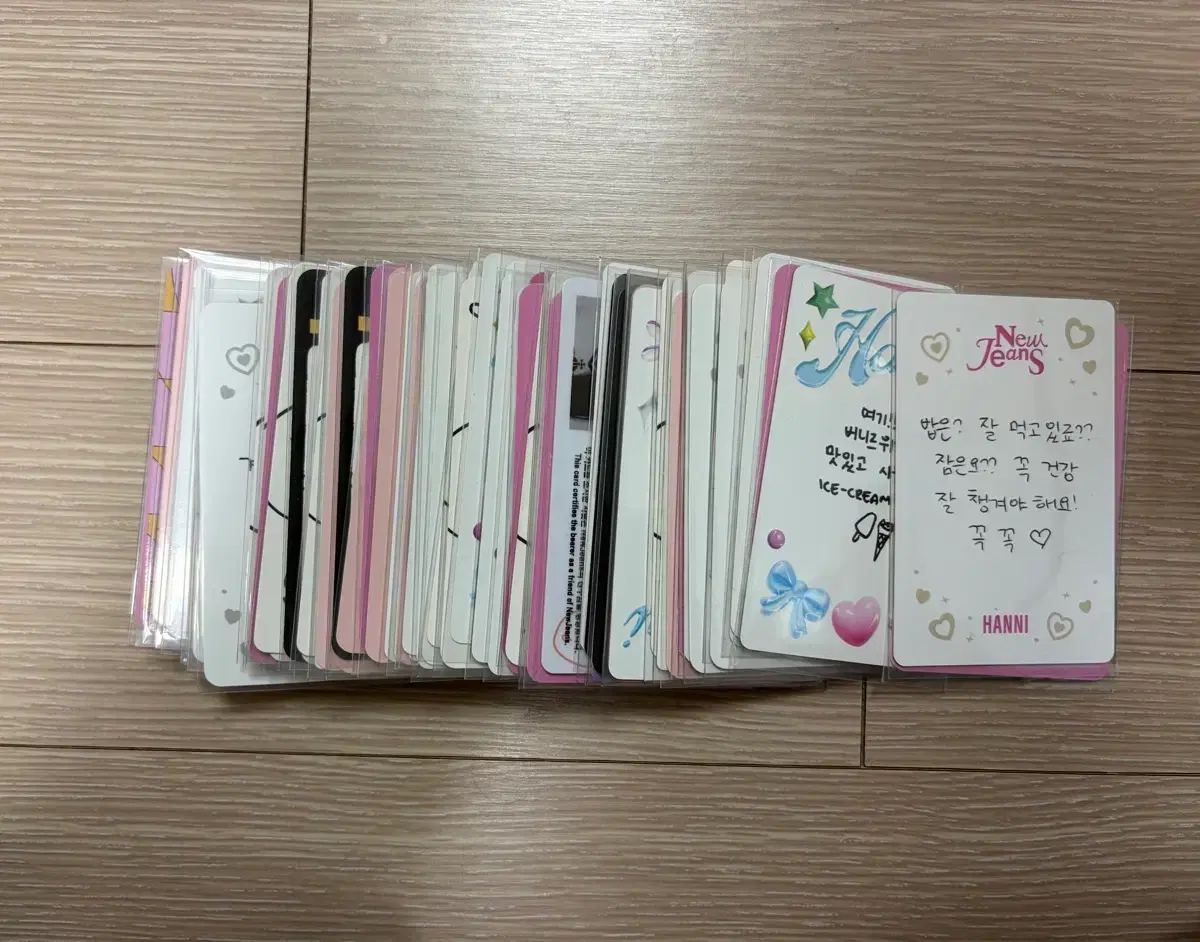 This card certifies the bearer as a friend of NewJeans.
Ha
여기!
버니즈위
맛있고 사
ICE-CREAM
New
Jeans
밥은? 잘 먹고있죠??
잠은요?? 꼭 건강
잘 챙겨야 해요!
꼭 꼭 ♡
HANNI